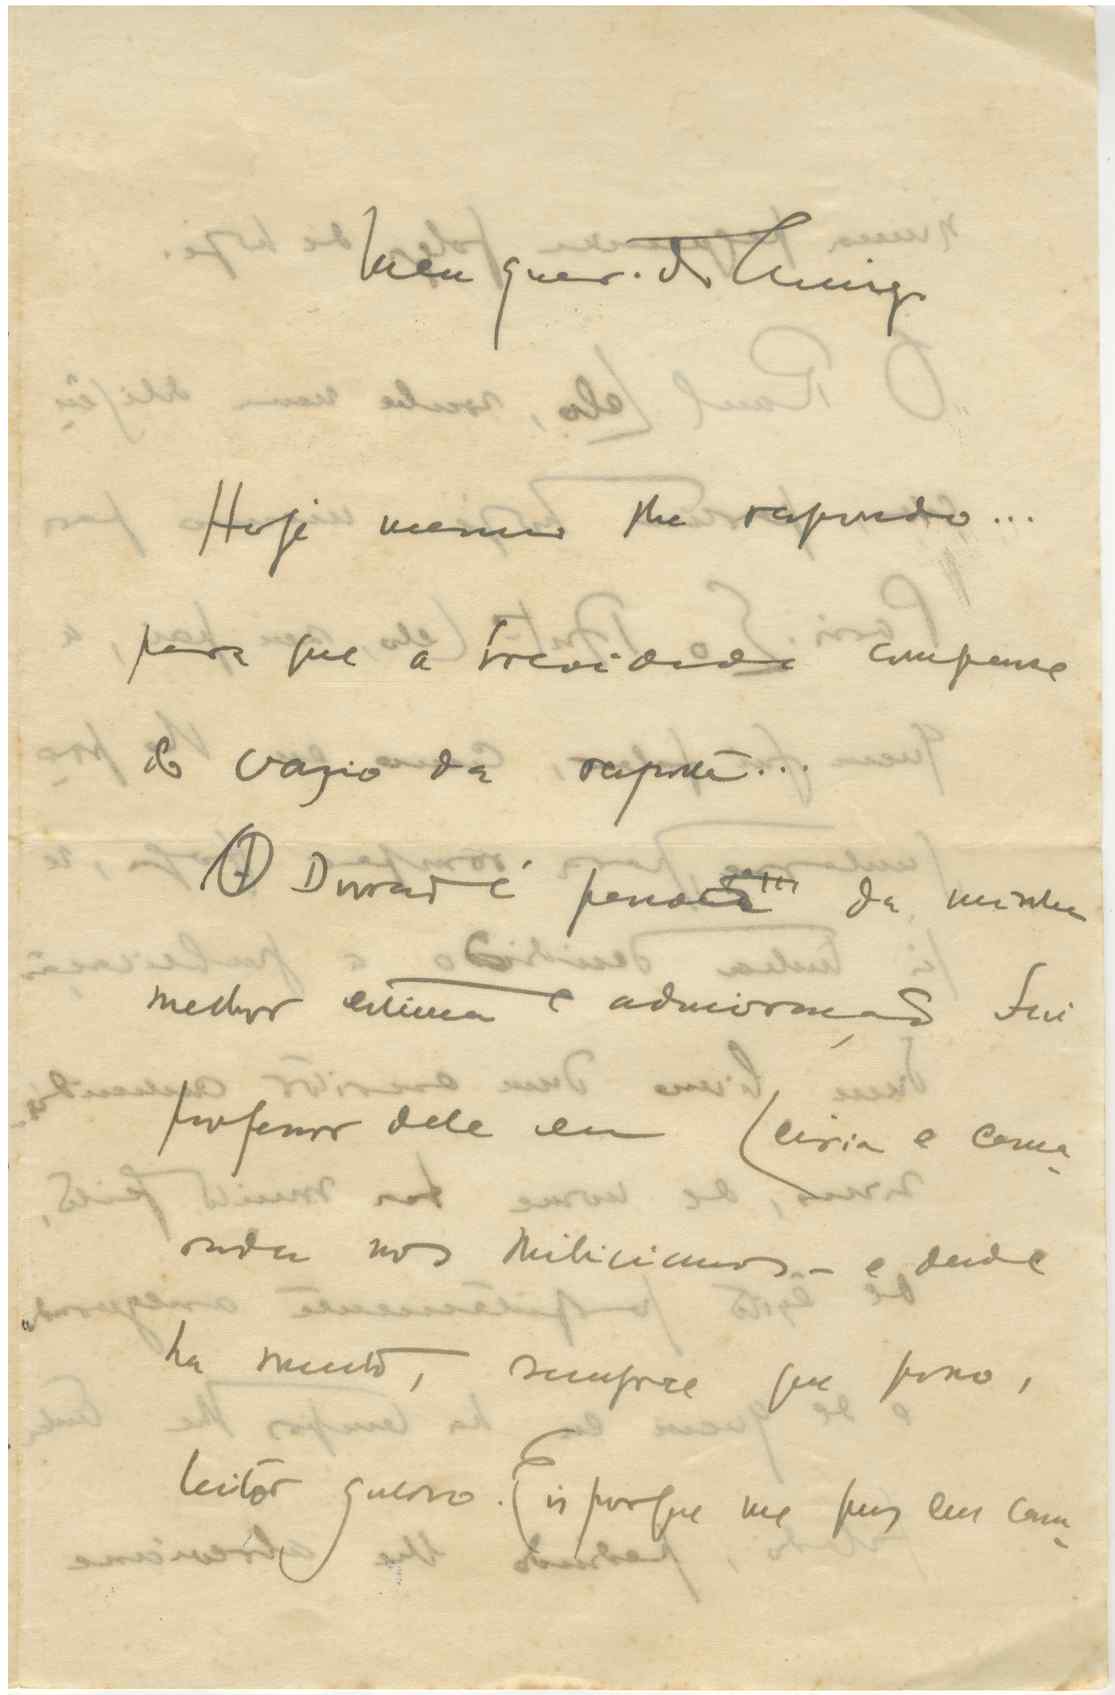 Meu querido Amigo
Hoje mesmo lhe respondo...
para que a brevidade compense
o vazio da resposta...
O Durão é pessoa da minha
melhor estima e admiração Fui
professor dele em Leiria e cama-
rada nos milicianos - e desde
ha muito, sempre que posso,
leitor guloso. Eis porque me puz em cam-